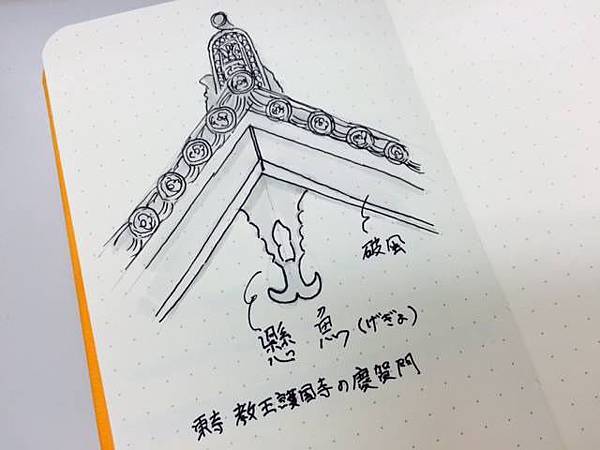 破風
懸魚(げぎょ)
東寺 教王護国寺の慶賀門